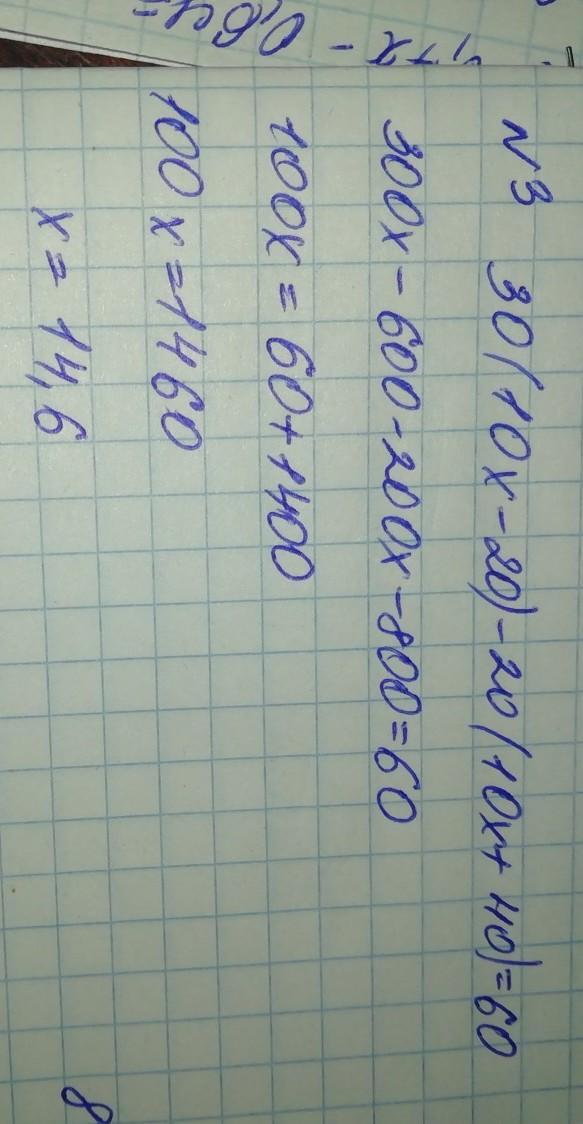 N3 30(10x-20)-20(10x+40)=60
300x-600-200x-800=60
100x=60+1400
100x=1460
x=14,6
8